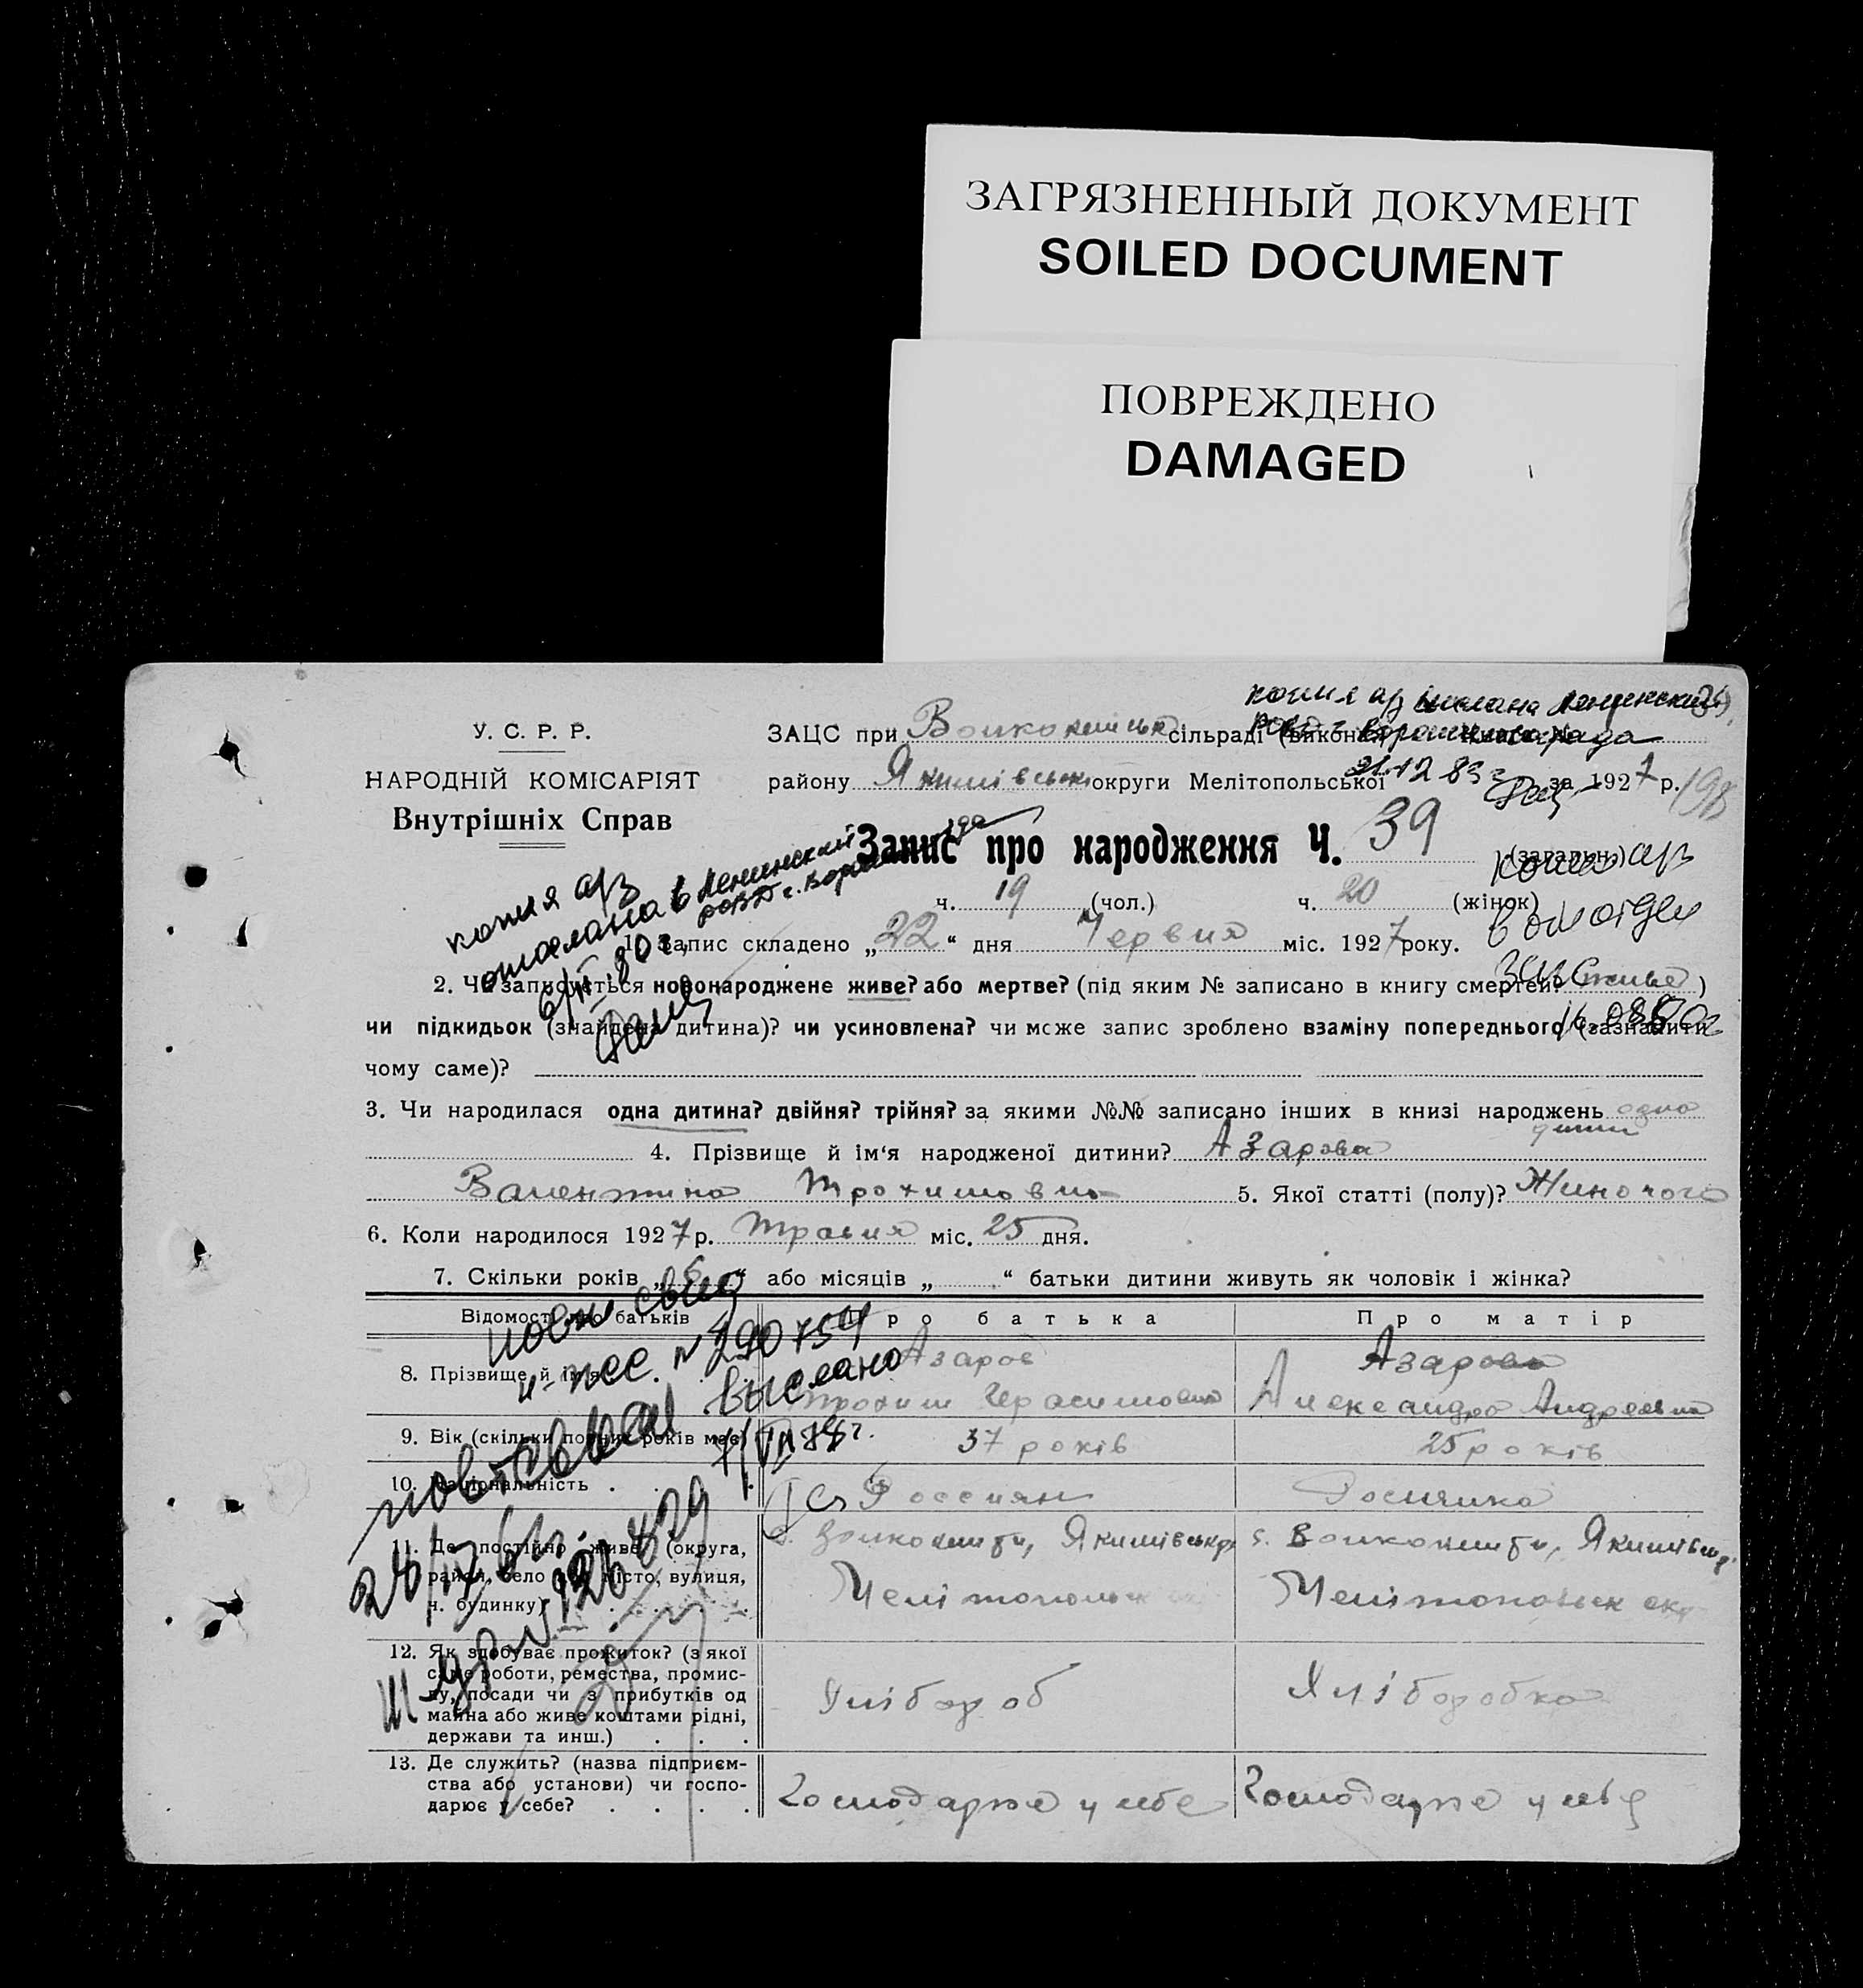 ЗАГРЯЗНЕННЫЙ ДОКУМЕНТ
SOILED DOCUMENT
ПОВРЕЖДЕНО
DAMAGED
копия а/з выслана Ленинский
У. С. Р. Р.
ЗАЦС при сільраді (виконк
НАРОДНІЙ КОМІСАРІЯТ
району Якимівськ округи Мелітопольської за 1927 р.
21.12 83
Внутрішніх Справ
Запис про народження Ч. 39 (загальн.)
копия а/з
ч. 19 (чол.) ч. 20 (жінок)
копия а/з
отослана в Ленинский
РОВД г.
1. Запис складено „22“ дня Червня міс. 1927 року.
2. Чи записується новонароджене живе? або мертве? (під яким № записано в книгу смертей? живе)
чи підкидьок (знайдена дитина)? чи усиновлена? чи може запис зроблено взаміну попереднього (зазначити
чому саме)?
3. Чи народилася одна дитина? двійня? трійня? за якими №№ записано інших в книзі народжень одна
4. Прізвище й ім'я народженої дитини? Азарова
Валентина Трохимовна 5. Якої статті (полу)? Жиночого
6. Коли народилося 1927 р. Травня міс. 25 дня.
7. Скільки років „6“ або місяців „ “ батьки дитини живуть як чоловік і жінка?
Відомості про батьків Про батька Про матір
8. Прізвище й ім'я Азаров Азарова
Трохим Герасимович Александра Андреевна
№ 290754
выслано
9. Вік (скільки повних років має) 37 років 25 років
10. Національність Россиян Росиянка
11. Де постійно живе (округа, район, село або місто, вулиця, ч. будинку)
Якимівськ Якимівськ
Мелітопольск Мелітопольск окр
12. Як здобуває прожиток? (з якої
саме роботи, ремества, промис-
лу, посади чи з прибутків од
майна або живе коштами рідні,
держави та инш.)
Хлібороб Хліборобка
13. Де служить? (назва підприєм-
ства або установи) чи госпо-
дарює у себе?
Господарює у себе Господарює у себе